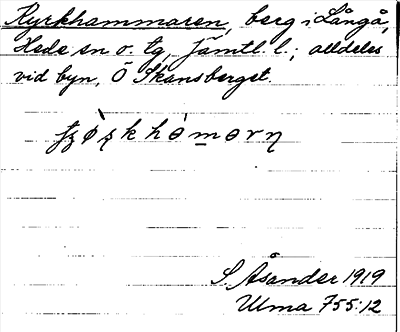 Kyrkhammaren, berg i Långå,
Hede sn o. tg Jämtl. l.; alldeles
vid byn, Ö Skansberget.
S. Åsander 1919
Ulma 755:12